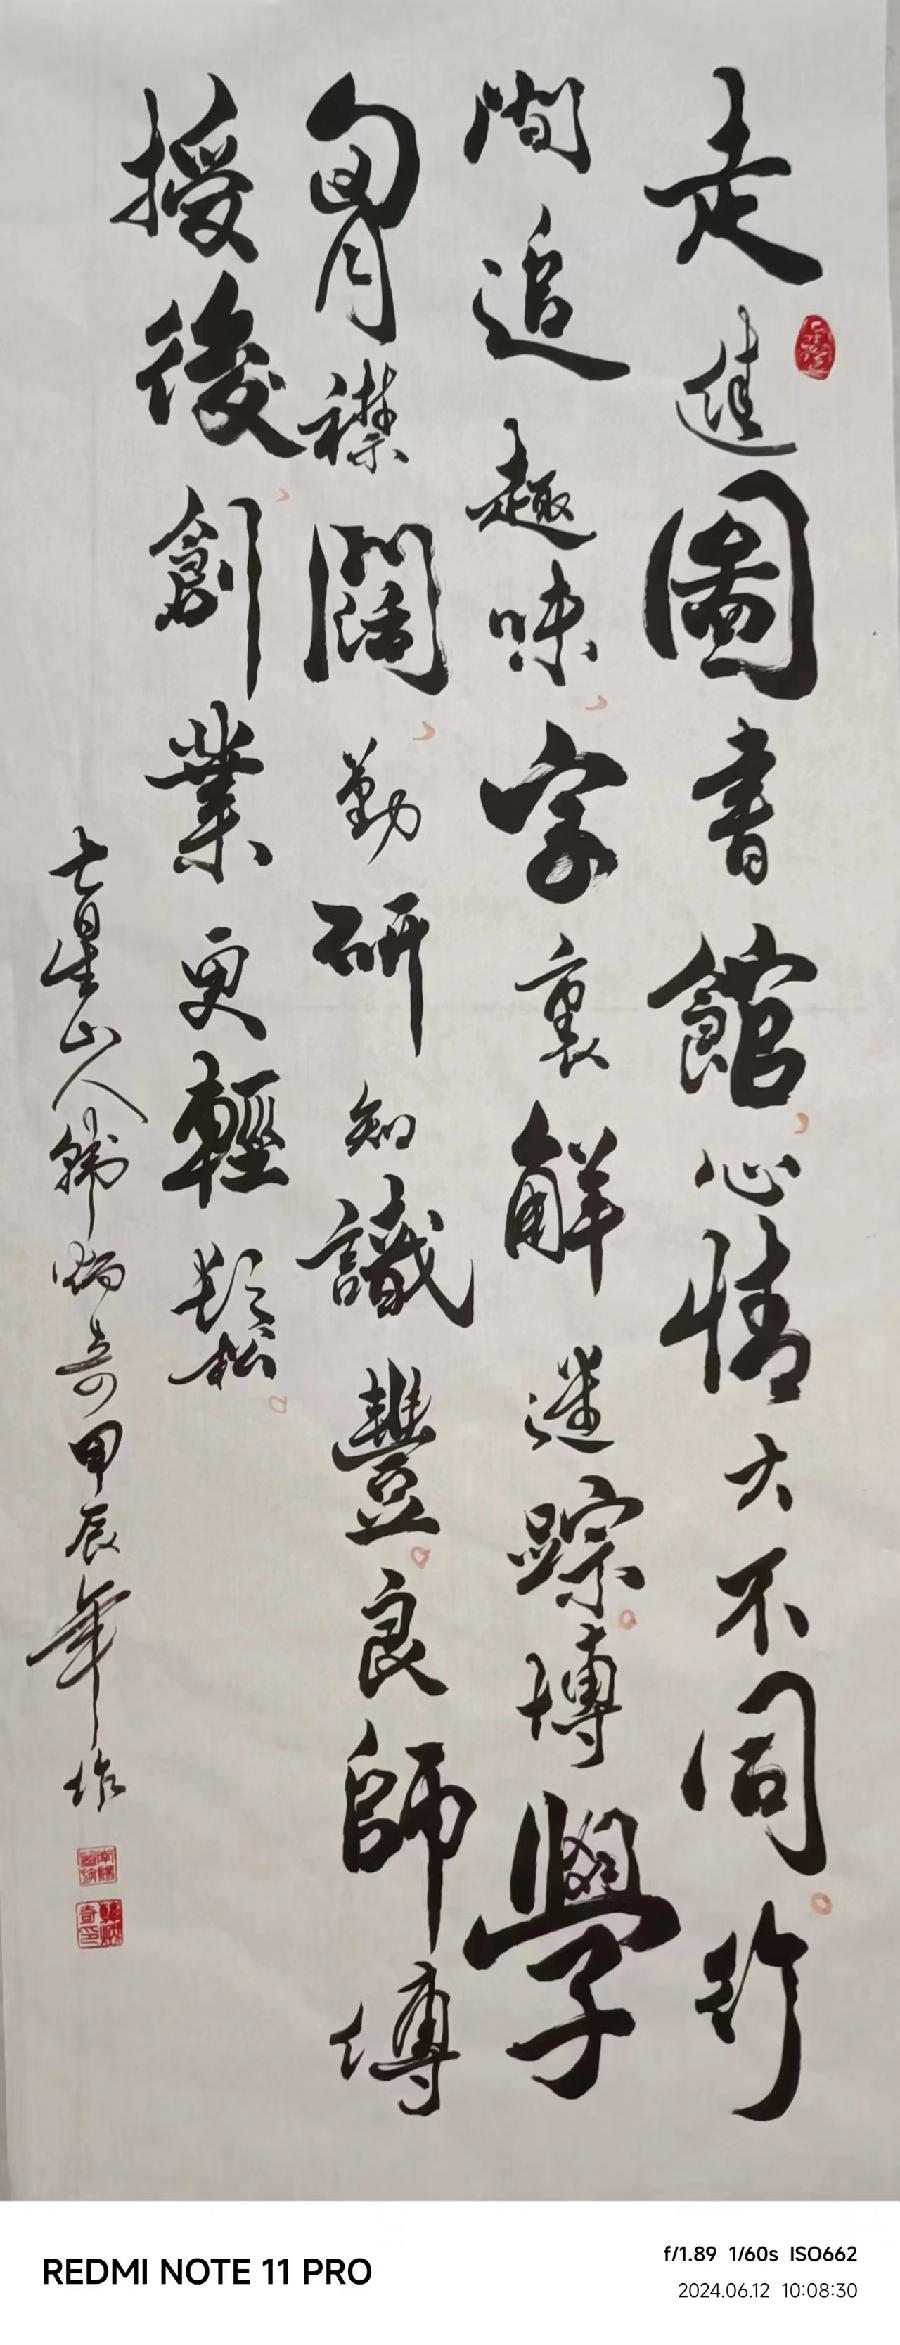 走進圖書館心情大不同行
間追趣味字裏解迷踪博學
匈月襟闊勤研知識豐良師傅
授後創業更輕鬆
七星山人韩炳奇甲辰年作
REDMI NOTE 11 PRO
f/1.89 1/60s ISO662
2024.06.12 10:08:30